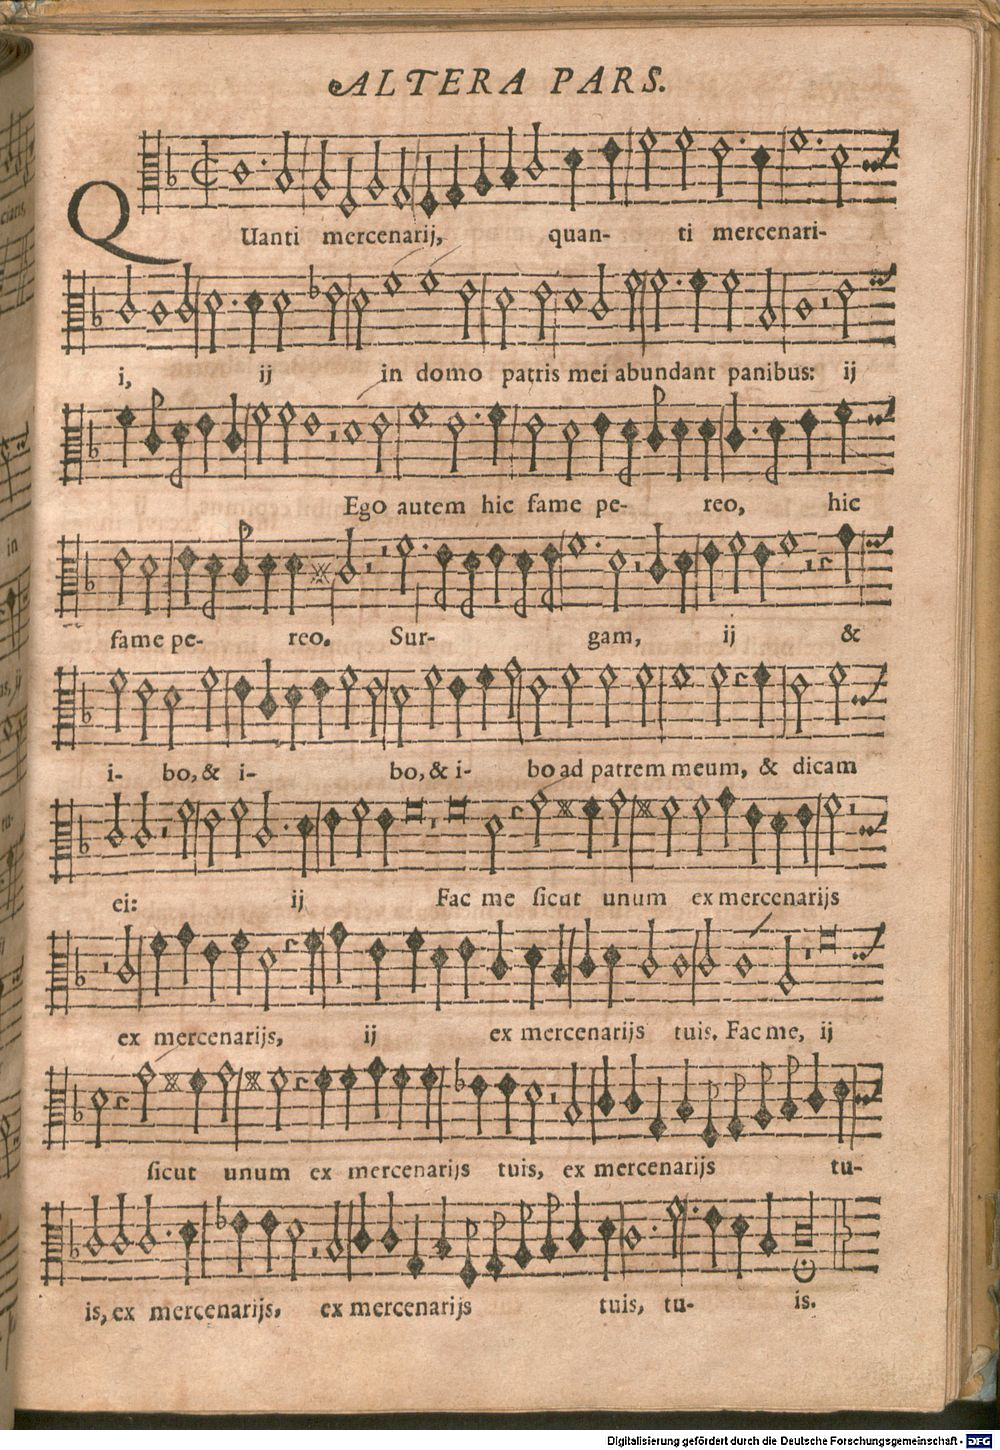 ALTERA PARS.
QUanti mercenarij, quan- ti mercenari-
i, ij in domo patris mei abundant panibus: ij
Ego autem hic fame pe- reo, hic
fame pe- reo. Sur- gam, ij &
i- bo, & i- bo, & i- bo ad patrem meum, & dicam
ei: ij Fac me sicut unum ex mercenarijs
ex mercenarijs, ij ex mercenarijs tuis. Fac me, ij
sicut unum ex mercenarijs tuis, ex mercenarijs tu-
is, ex mercenarijs, ex mercenarijs tuis, tu- is.
Digitalisierung gefördert durch die Deutsche Forschungsgemeinschaft - DFG